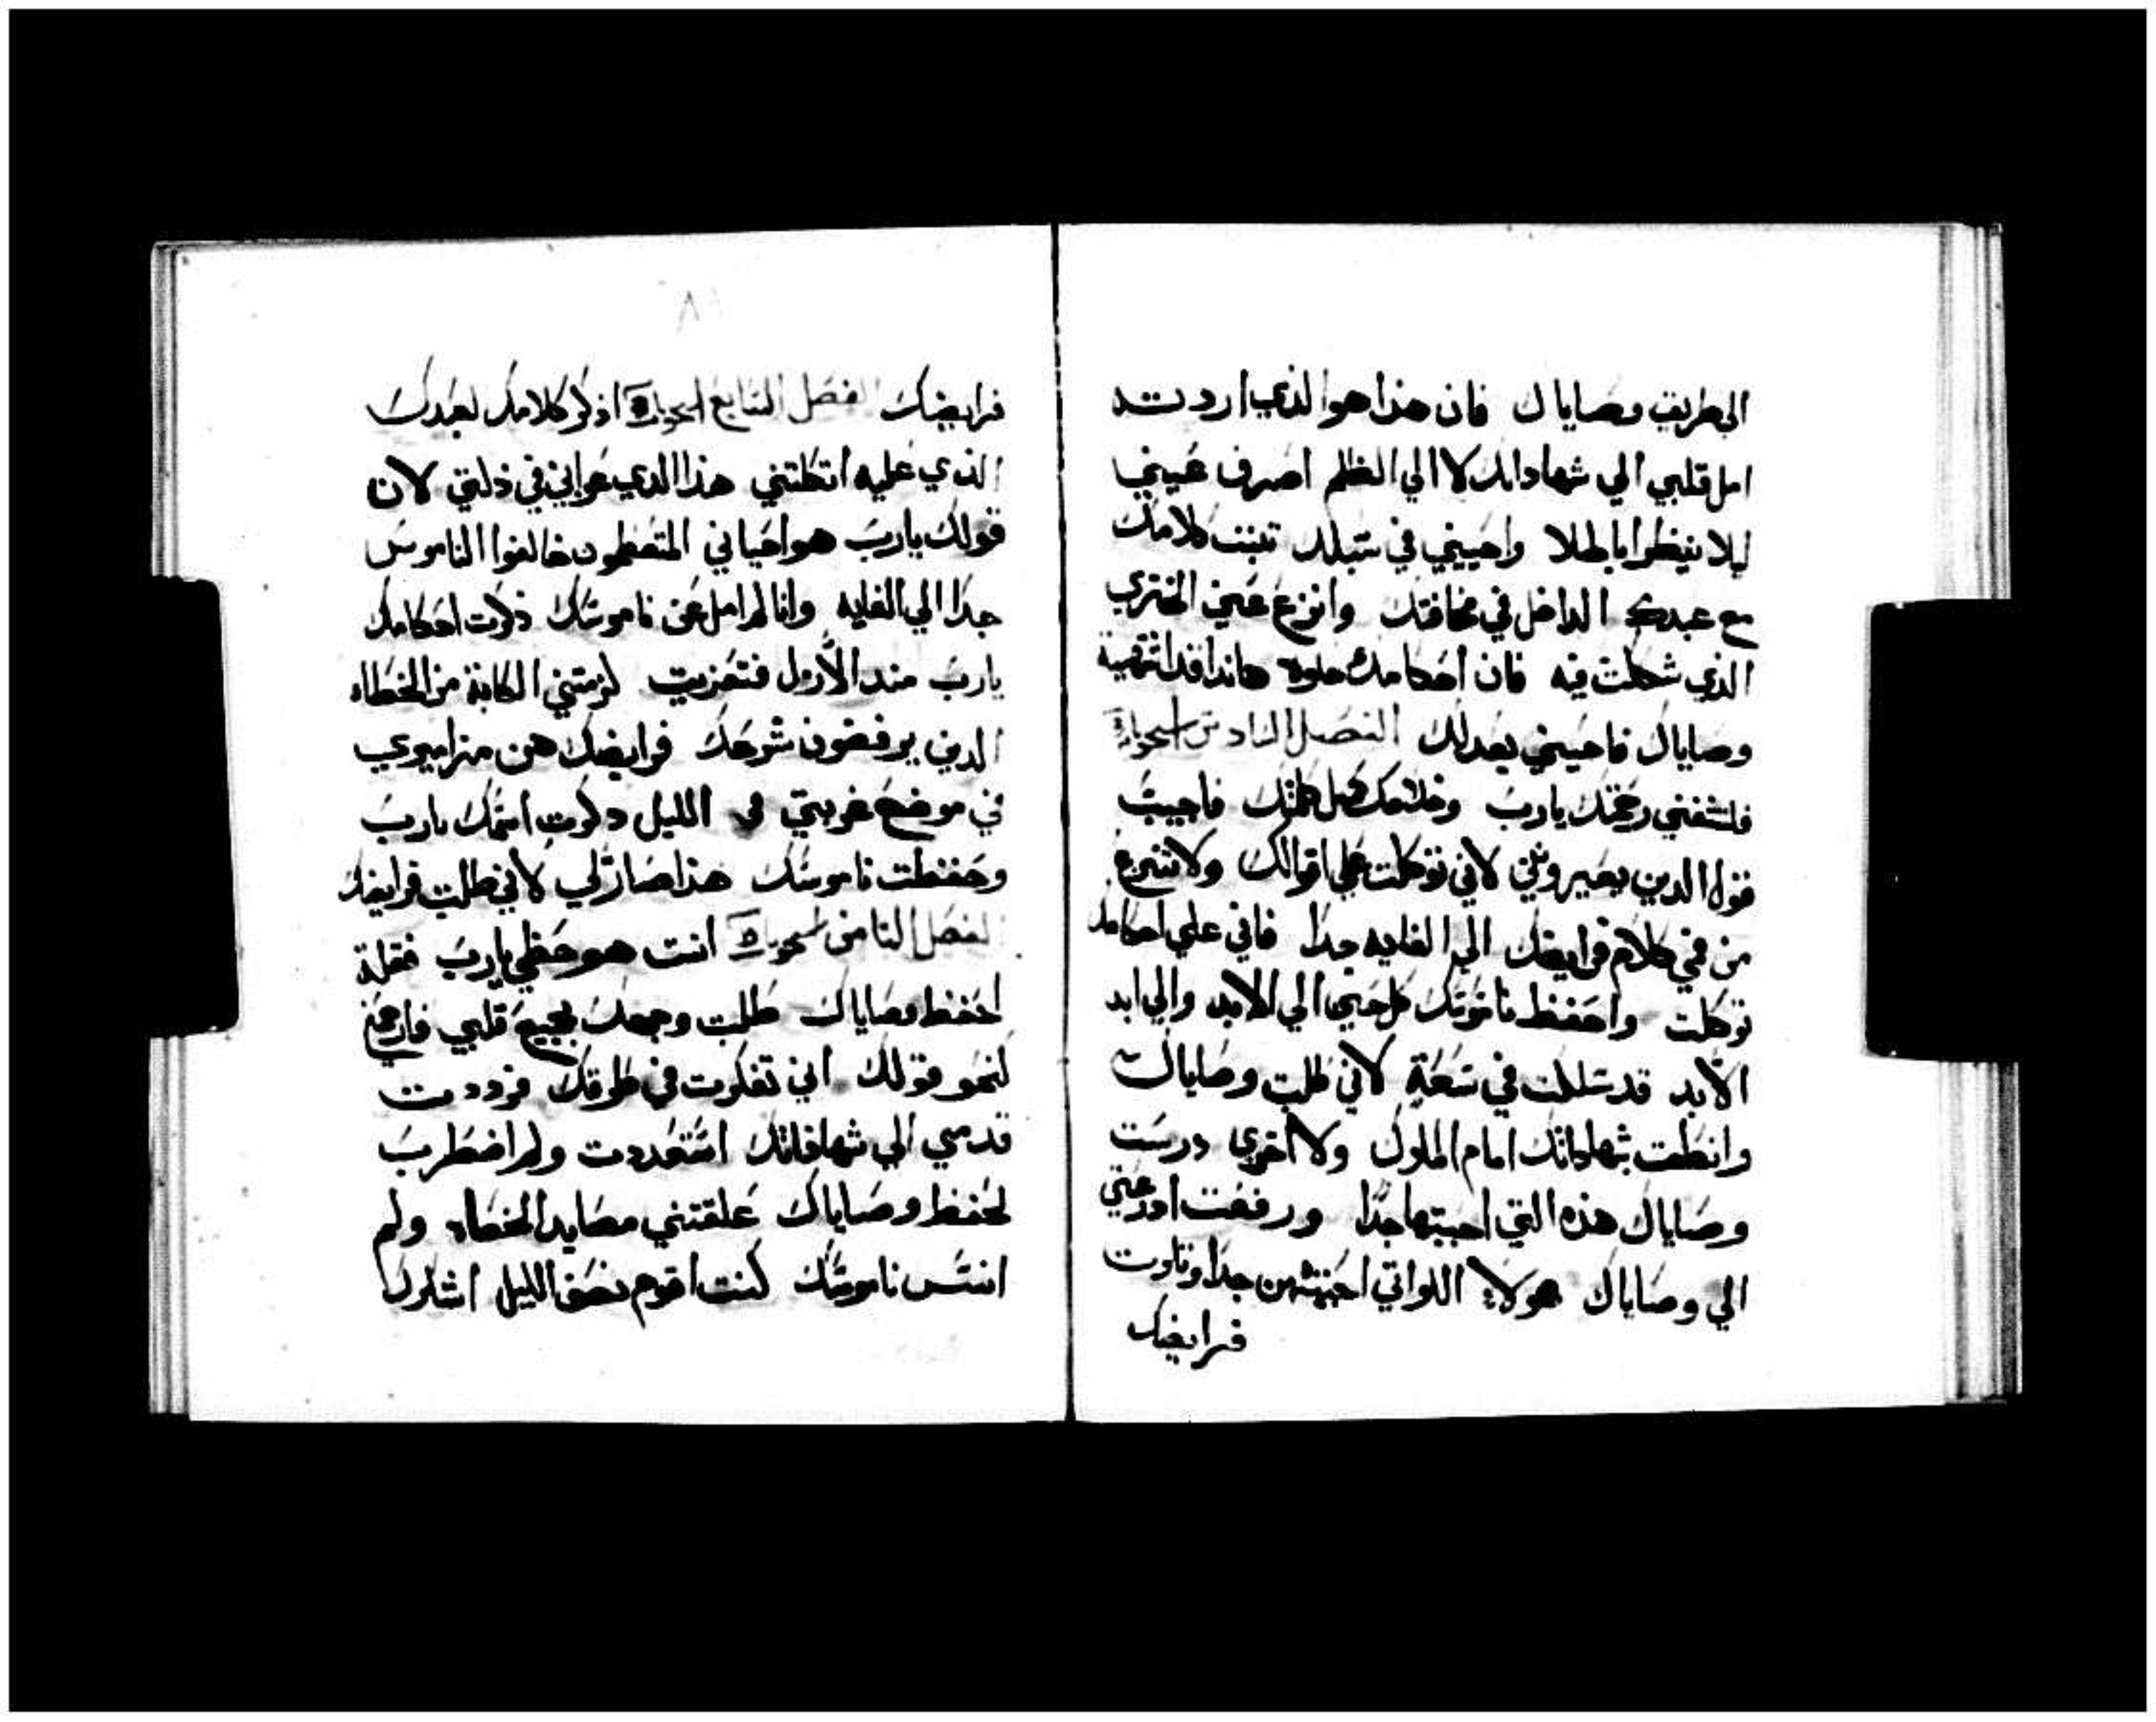 الي طريق وصاياك فان هذا هو الذي اردته
امل قلبي الي شهاداتك لا الي الظلم اصرف عيني
ليلا ينظرا باطلا واحييني في سبلك تبت كلامك
مع عبدك الداخل في مخافتك وانزع عني
الذي شككت فيه فان احكامك حلوه هاندا قد اشتهية
وصاياك فاحييني بعدلك الفصل السادس
فلتغشني رحمتك يارب وخلاصك كمل فاجيب
قول الدين يعيروني لاني توكلت علي اقوالك ولا تنزع
من في كلام فرايضك الي الغايه جدا فاني علي احكامك
توكلت واحفظ ناموسك كل حين الي الابد والي ابد
الابد قد سلكت في سعة لاني طلبت وصاياك
وانطقت بشهاداتك امام الملوك ولا اخزي درست
وصاياك هذه التي احببتها جدا ورفعت
الي وصاياك هولاء اللواتي احببتهن جدا وتلوت
فرايضك
٨
فرايضك الفصل السابع اذكر كلامك لعبدك
الذي عليه اتكلتني هذا الدي عزاني في ذلتي لان
قولك يارب هو احياني المتعظمون خالفوا الناموس
جدا الي الغايه وانا لم امل عن ناموسك ذكرت احكامك
يارب مند الاول فتعزيت لزمتني الكابة من الخطاه
الدين يرفضون شرعك فرايضك هن مزاميري
في موضع غربتي في الليل دكرت اسمك يارب
وحفظت ناموسك هذا صار لي لاني طلبت فرايضك
الفصل التامن انت هو حظي يارب فقلة
احفظ وصاياك طلبت وجهك بجميع قلبي فارحمني
كنحو قولك اني تفكرت في طرقك فرددت
قدمي الي شهاداتك استعددت ولم اضطرب
لحفظ وصاياك علقتني مصايد الخطاه ولم
انس ناموسك كنت اقوم نصف الليل اشكرك